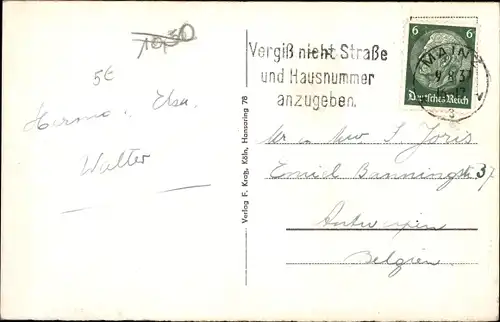 10,50
5€
Hermo, Elsa,
Walter
Verlag F. Kratz, Köln, Hansaring 78
Vergiß nicht Straße
und Hausnummer
anzugeben.
6 6
Deutsches Reich
MAINZ
9.8.37
Mr en Mw J. Joris
Emiel Banningstr 37
Antwerpen
Belgien